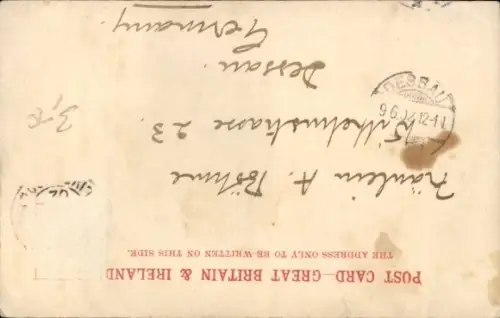 POST CARD—GREAT BRITAIN & IRELAND
THE ADDRESS ONLY TO BE WRITTEN ON THIS SIDE.
Fräulein A. Böhme
Wilhelmstrasse 23.
Dessau.
Germany.
DESSAU
9.6.02.12-1
02
3,-